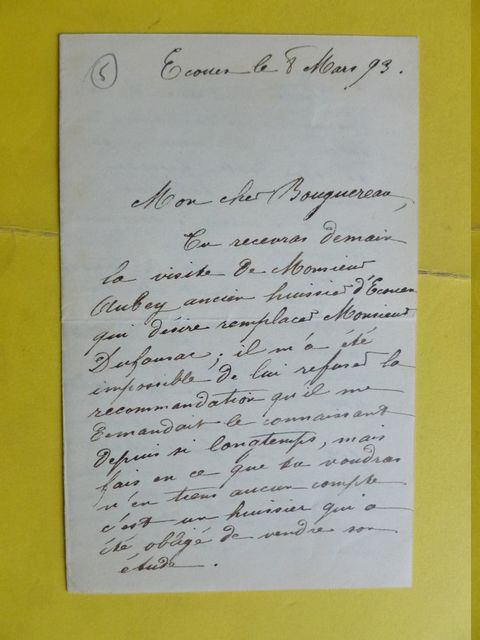 5
Ecouen le 8 Mars 93.
Mon cher Bouguereau,
Tu recevras demain
la visite de Monsieur
Aubey ancien huissier d'Ecouen
qui désire remplacer Monsieur
; il m'a été
impossible de lui refuser la
recommandation qu'il me
demandait le connaissant
depuis si longtemps, mais
fais en ce que tu voudras
n'en tiens aucun compte
c'est un huissier qui a
été, obligé de vendre son
etude.